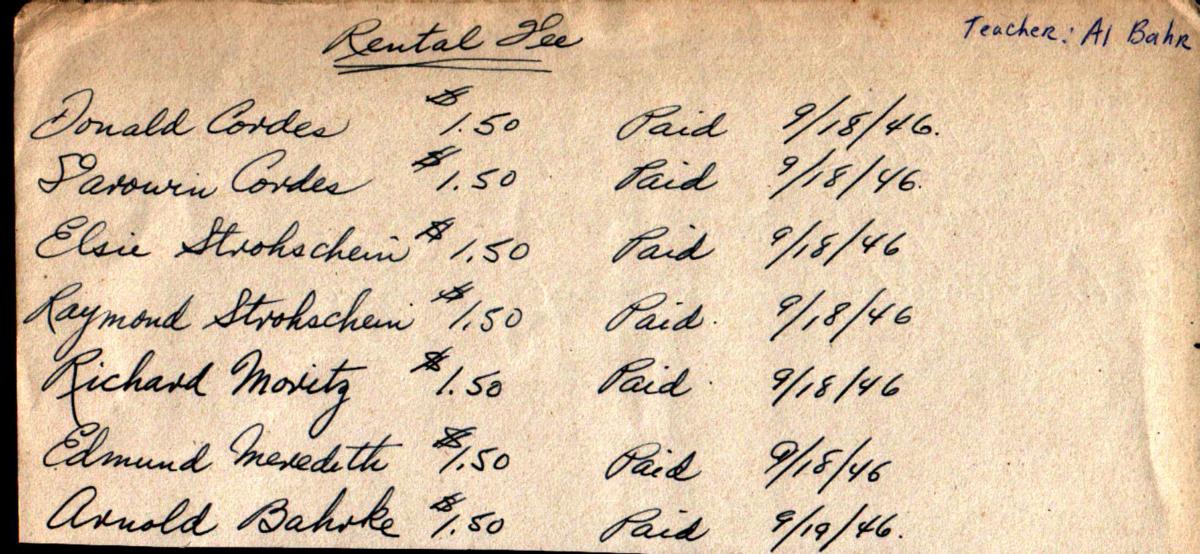 Rental Fee
Teacher: Al Bahr
Donald Cordes $1.50 Paid 9/18/46.
Cordes $1.50 Paid 9/18/46.
Elsie Strohschein $1.50 Paid 9/18/46
Raymond Strohschein $1.50 Paid. 9/18/46
Richard Moritz $1.50 Paid 9/18/46
Edmund Meredith $1.50 Paid 9/18/46
Arnold Bahrke $1.50 Paid 9/19/46.